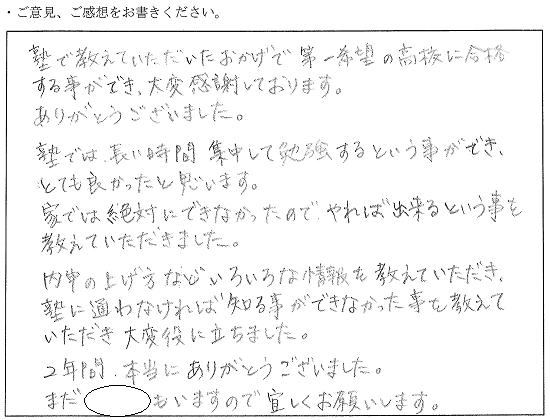 ・ご意見、ご感想をお書きください。
塾で教えていただいたおかげで第一希望の高校に合格
する事ができ、大変感謝しております。
ありがとうございました。
塾では、長い時間 集中して勉強するという事ができ、
とても良かったと思います。
家では絶対にできなかったので、やれば出来るという事を
教えていただきました。
内申の上げ方などいろいろな情報を教えていただき、
塾に通わなければ知る事ができなかった事を教えて
いただき 大変役に立ちました。
2年間、本当にありがとうございました。
まだ もいますので宜しくお願いします。